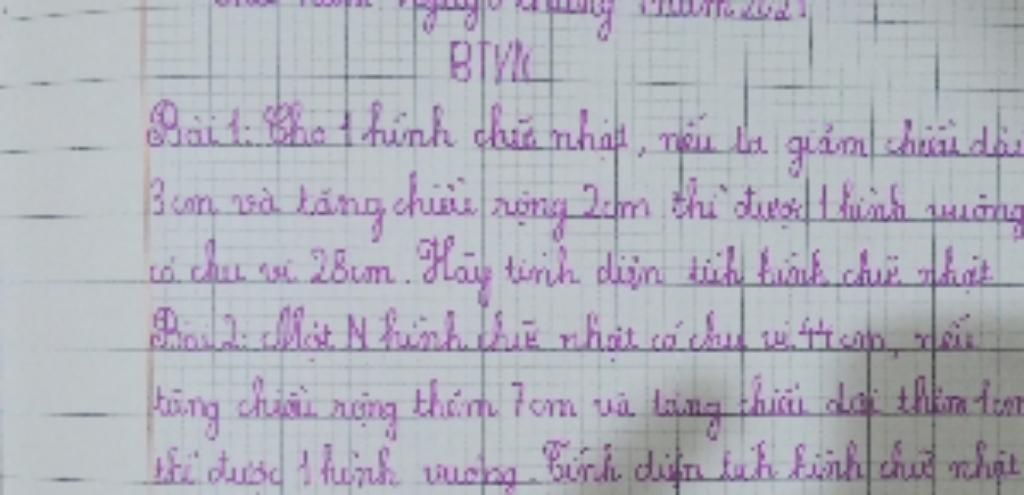 năm ngày 6 tháng 1 năm 2021
BTVN
Bài 1: Cho 1 hình chữ nhật, nếu ta giảm chiều dài
3cm và tăng chiều rộng 2cm thì được 1 hình vuông
có chu vi 28cm. Hãy tính diện tích hình chữ nhật
Bài 2: Một N hình chữ nhật có chu vi 44cm, nếu
tăng chiều rộng thêm 7cm và tăng chiều dài thêm 1cm
thì được 1 hình vuông. Tính diện tích hình chữ nhật